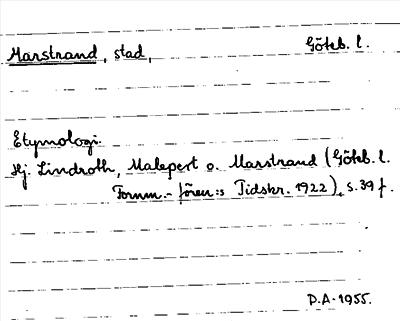 Marstrand, stad, Göteb. l.
Etymologi.
Hj. Lindroth, Malepert o. Marstrand (Göteb. l.
Fornm.-fören:s Tidskr. 1922), s. 39 f.
D.A. 1955.